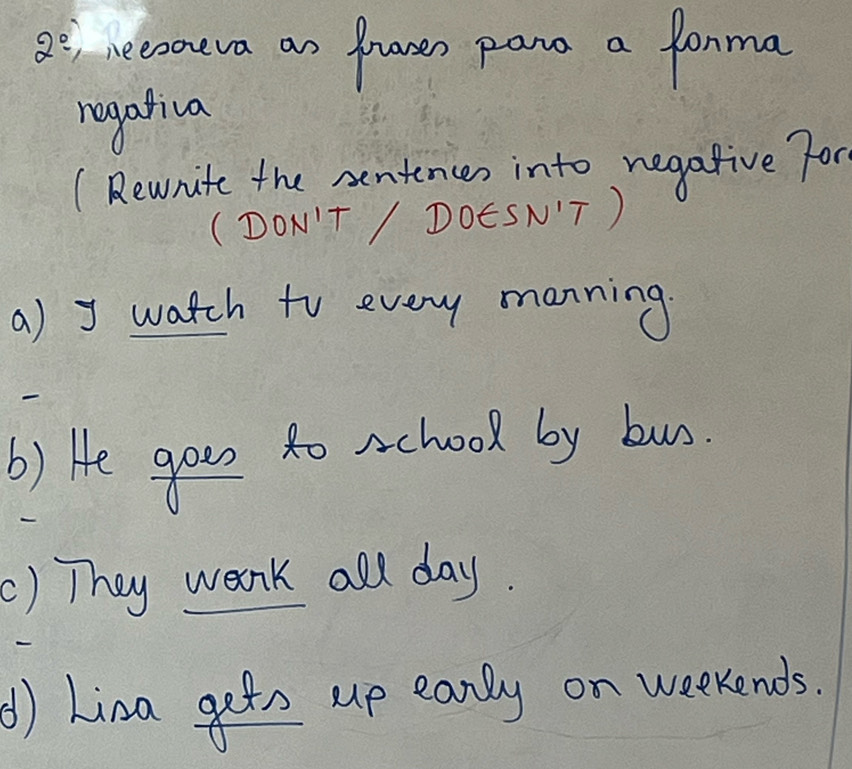 2º) Reescreva as frases para a forma
negativa
( Rewrite the sentences into negative For
(DON'T / DOESN'T)
a) I watch tv every morning.
-
b) He goes to school by bus.
-
c) They work all day.
-
d) Lisa gets up early on weekends.